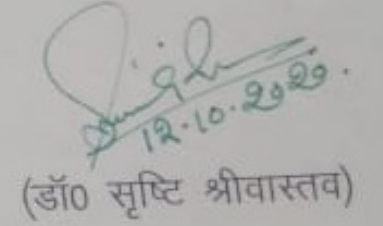 12.10.2020.
(डॉ0 सृष्टि श्रीवास्तव)